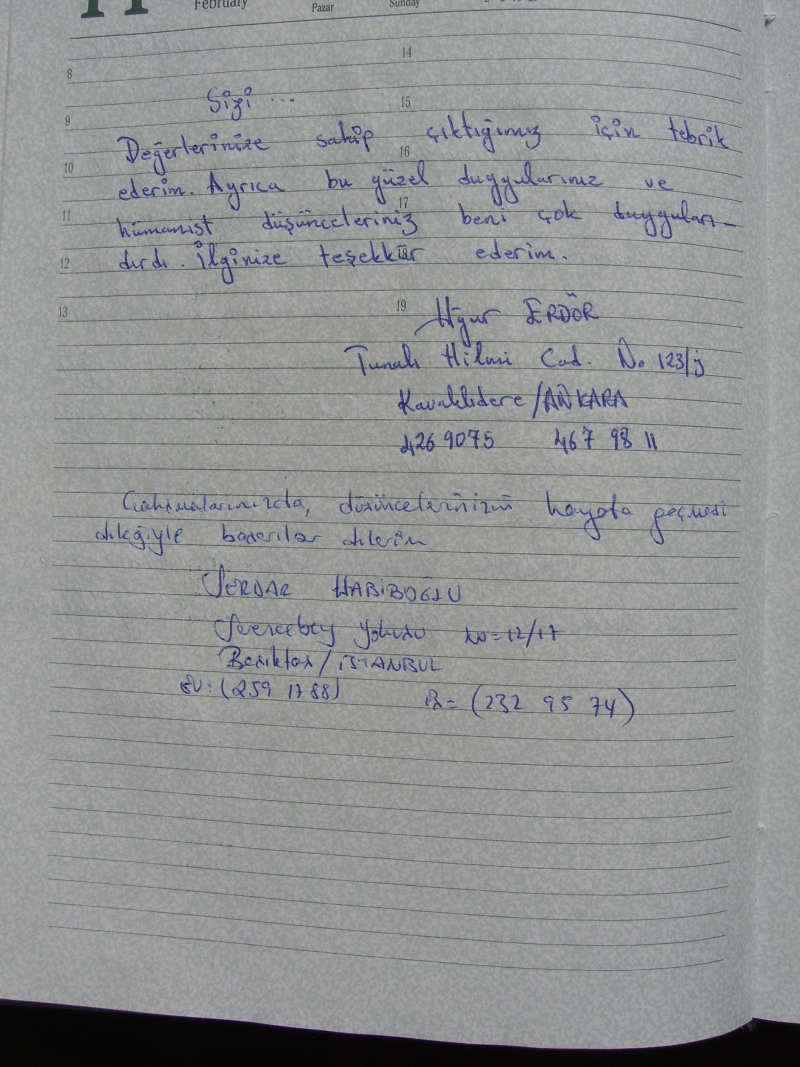 11
February
Pazar
Sunday
14
8
Sizi ...
15
9
Değerlerinize sahip çıktığımız için tebrik
16
10
ederim. Ayrıca bu güzel duygularınız ve
17
11
hümanist düşünceleriniz beni çok duyguları-
18
12
dırdı. İlginize teşekkür ederim.
13
19
Uğur ERDÖR
Tunalı Hilmi Cad. No 123/j
Kavaklıdere/ANKARA
426 9075 467 98 11
Çalışmalarınızda, düşüncelerinizin hayata geçmesi
dileğiyle başarılar dilerim
SERDAR HABİBOĞLU
Serencebey Yokuşu No=12/17
Beşiktaş/İSTANBUL
EV: (259 17 88) İş= (232 95 74)